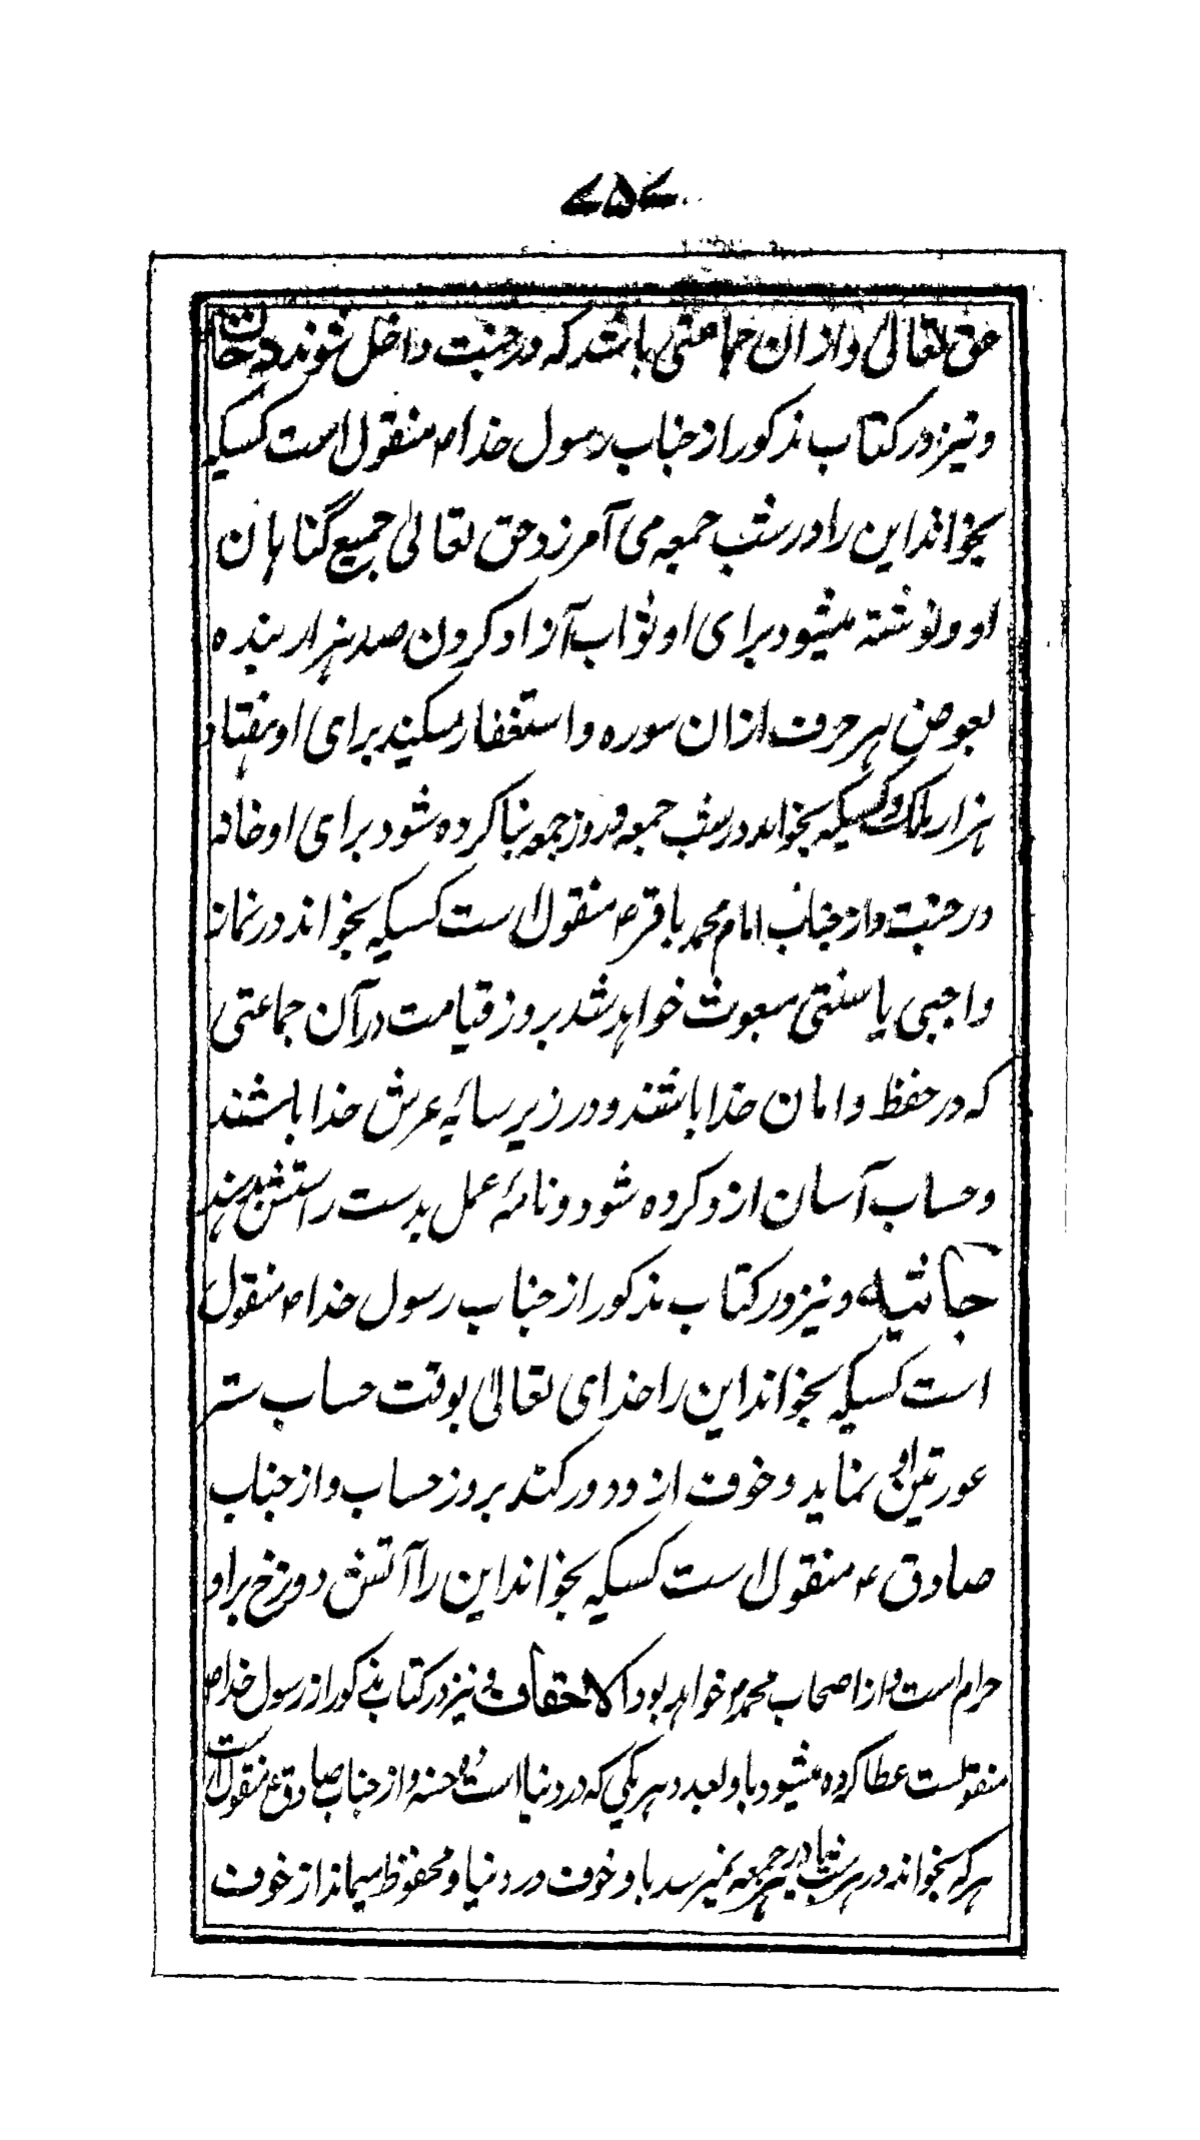 ۷۵۷
حق تعالی و از ان جماعتی باشد که در جنت داخل شوند دخان
و نیز در کتاب مذکور از جناب رسول خدا ص منقول است کسیکه
بخواند این را در شب جمعه می آمرزد حق تعالی جمیع گناہان
او و نوشته میشود برای او ثواب آزاد کردن صد ہزار بنده
بعوض ہر حرف از ان سوره و استغفار میکنند برای او ہفتاد
ہزار ملک و کسیکه بخواند در شب جمعه و روز جمعه بنا کرده شود برای او خانه
در جنت و از جناب امام محمد باقر ع منقول است کسیکه بخواند در نماز
واجبی یا سنتی مبعوث خواہد شد بروز قیامت در آن جماعتی
که در حفظ و امان خدا باشند و در زیر سایۂ عرش خدا باشند
و حساب آسان ازو کرده شود و نامۂ عمل بدست راستش بدہند
جاثیه و نیز در کتاب مذکور از جناب رسول خدا ص منقول
است کسیکه بخواند این را خدای تعالیٰ بوقت حساب ستر
عورتین او نماید و خوف ازو دور کند بروز حساب و از جناب
صادق ع منقول است کسیکه بخواند این را آتش دوزخ برو
حرام است و از اصحاب محمد ص خواہد بود الاحقاف و نیز در کتاب مذکور از رسول خدا ص
منقولست عطا کرده میشود باو بعدد ہر یکی که در دنیا است حسنه و از جناب صادق ع منقول است
ہر که بخواند در ہر شب یا در ہر جمعه نمیرسد باو خوف در دنیا و محفوظ میماند از خوف